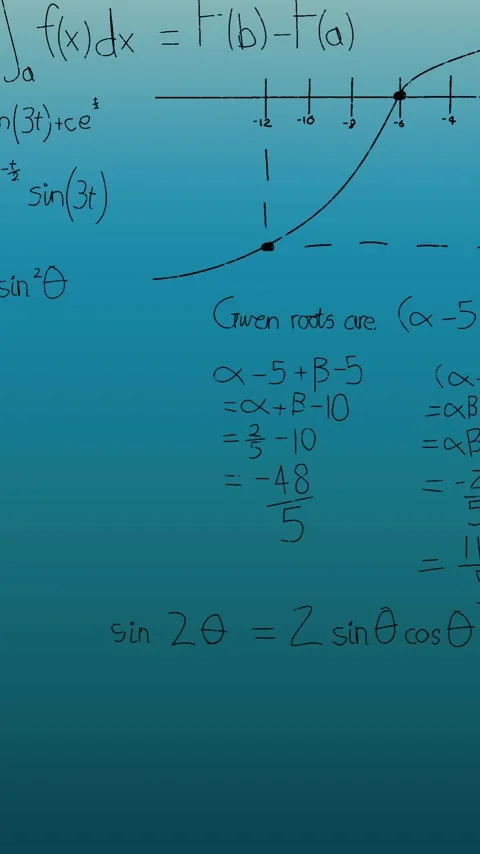 ∫a f(x)dx = F(b)-F(a)
n(3t)+ce^t/2
-12 -10 -8 -6 -4
-t/2 sin(3t)
sin²θ
Given roots are (α-5
α-5+β-5
=α+β-10
=2/5-10
=-48/5
(α-
=αβ
=αβ
=-2/5
=11
sin 2θ = 2 sinθcosθ